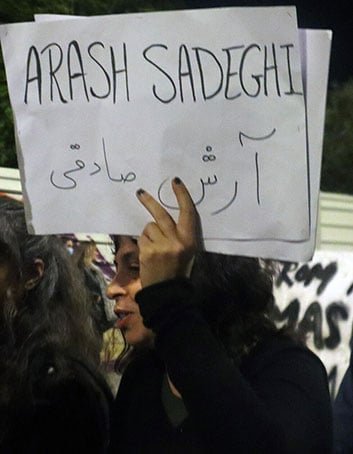 ARASH SADEGHI
آرش صادقی
ROM
MAS